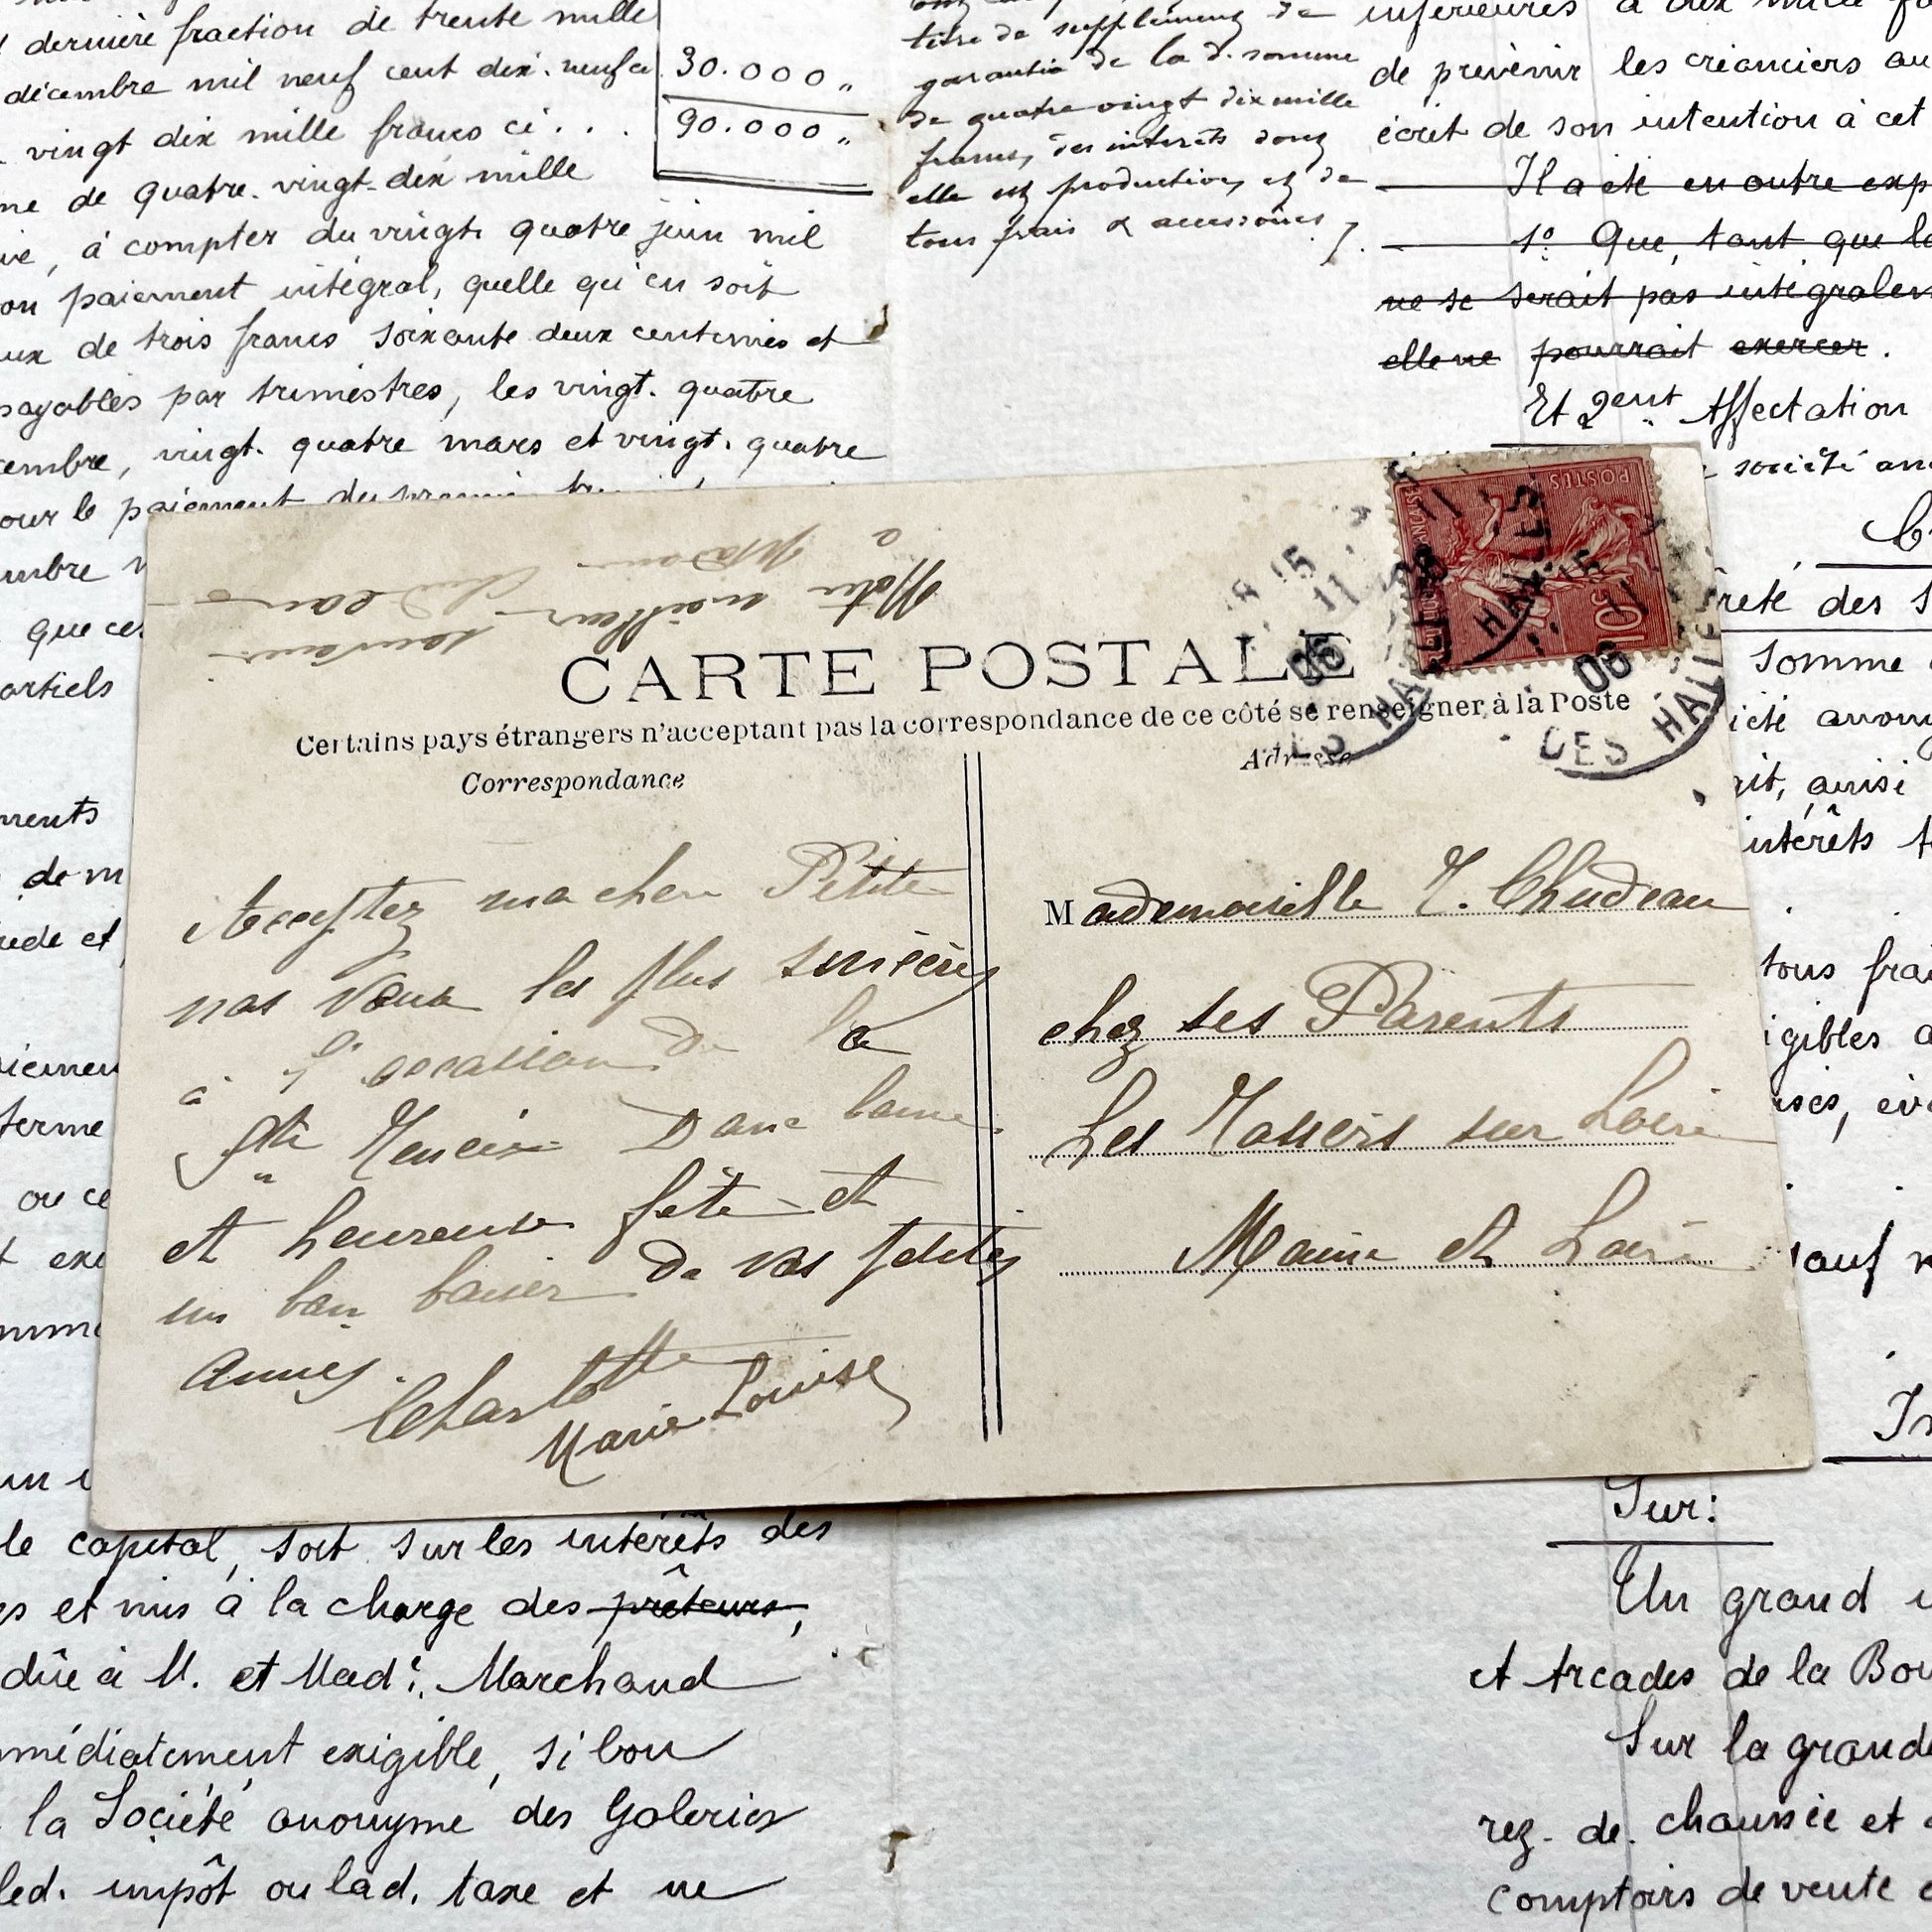 dernière fraction de trente mille
décembre mil neuf cent dix-neuf ci
30.000 "
vingt dix mille francs ci . . .
90.000 "
me de quatre-vingt-dix mille
à compter du vingt quatre juin mil
paiement intégral, quelle qu'en soit
ux de trois francs soixante deux centimes et
payables par trimestres, les vingt-quatre
cembre, vingt-quatre mars et vingt-quatre
our le paiement du premier
que ces
artiels
ments
de m
ède et
ferme
ou ce
titre de supplément de
garantie de la d. somme
de quatre vingt dix mille
francs, des intérêts dont
elle est productive, et de
tous frais & accessoires
inférieures à dix mille
de prévenir les créanciers au
écrit de son intention à cet
Il a été en outre exp
1º Que, tant que la
ne se serait pas intégralem
elle ne pourrait exercer.
Et 2ent Affectation
société an
reté des
somme
iété anony
ait, ainsi
intérêts
tous fra
igibles
sauf
Notre meilleur souvenir
à Madame Chudeau
CARTE POSTALE
Certains pays étrangers n'acceptant pas la correspondance de ce côté se renseigner à la Poste
Correspondance
Adresse
POSTES
10
15
11
06
DES HALLES
15
11
06
DES HALLES
Acceptez ma chere Petite
nos Vœux les plus sincères
à l'occasion de la
Ste Donc bonne
et heureuse fête et
un bon baiser de vos petites
amies.
Charlotte
Marie Louise
Mademoiselle Chudeau
chez ses Parents
Les Rosiers sur Loire
Maine et Loire
le capital, soit sur les intérêts des
es et mis à la charge des prêteurs,
dûe à M. et Made. Marchand
mmédiatement exigible, si bon
la Société anonyme des Galeries
led. impôt ou lad. taxe et ne
Sur:
Un grand
et Arcades de la Bou
Sur la grande
rez-de-chaussée et
comptoirs de vente